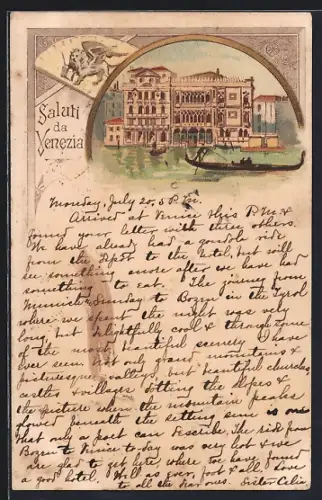 Saluti
da
Venezia
Monday, July 20, 5 P.M.
Arrived at Venice this P.M. &
found your letter with three others.
We have already had a gondola ride
from the depot to the hotel, but will
see something more after we have had
something to eat. The journey from
Munich Sunday to Bozen in the Tyrol
where we spent the night was very
long but delightfully cool & through some
of the most beautiful scenery I have
ever seen. Not only grand mountains &
picturesque valleys, but beautiful churches,
castles & villages dotting the slopes &
the picture when the mountain peaks
glowed beneath the setting sun is one
that only a poet can describe. The ride from
Bozen to Venice today was very hot & we
are glad to get here where we have found
a good hotel. Will so ever, foot & all. Love
to all the dear ones. Sister Celia